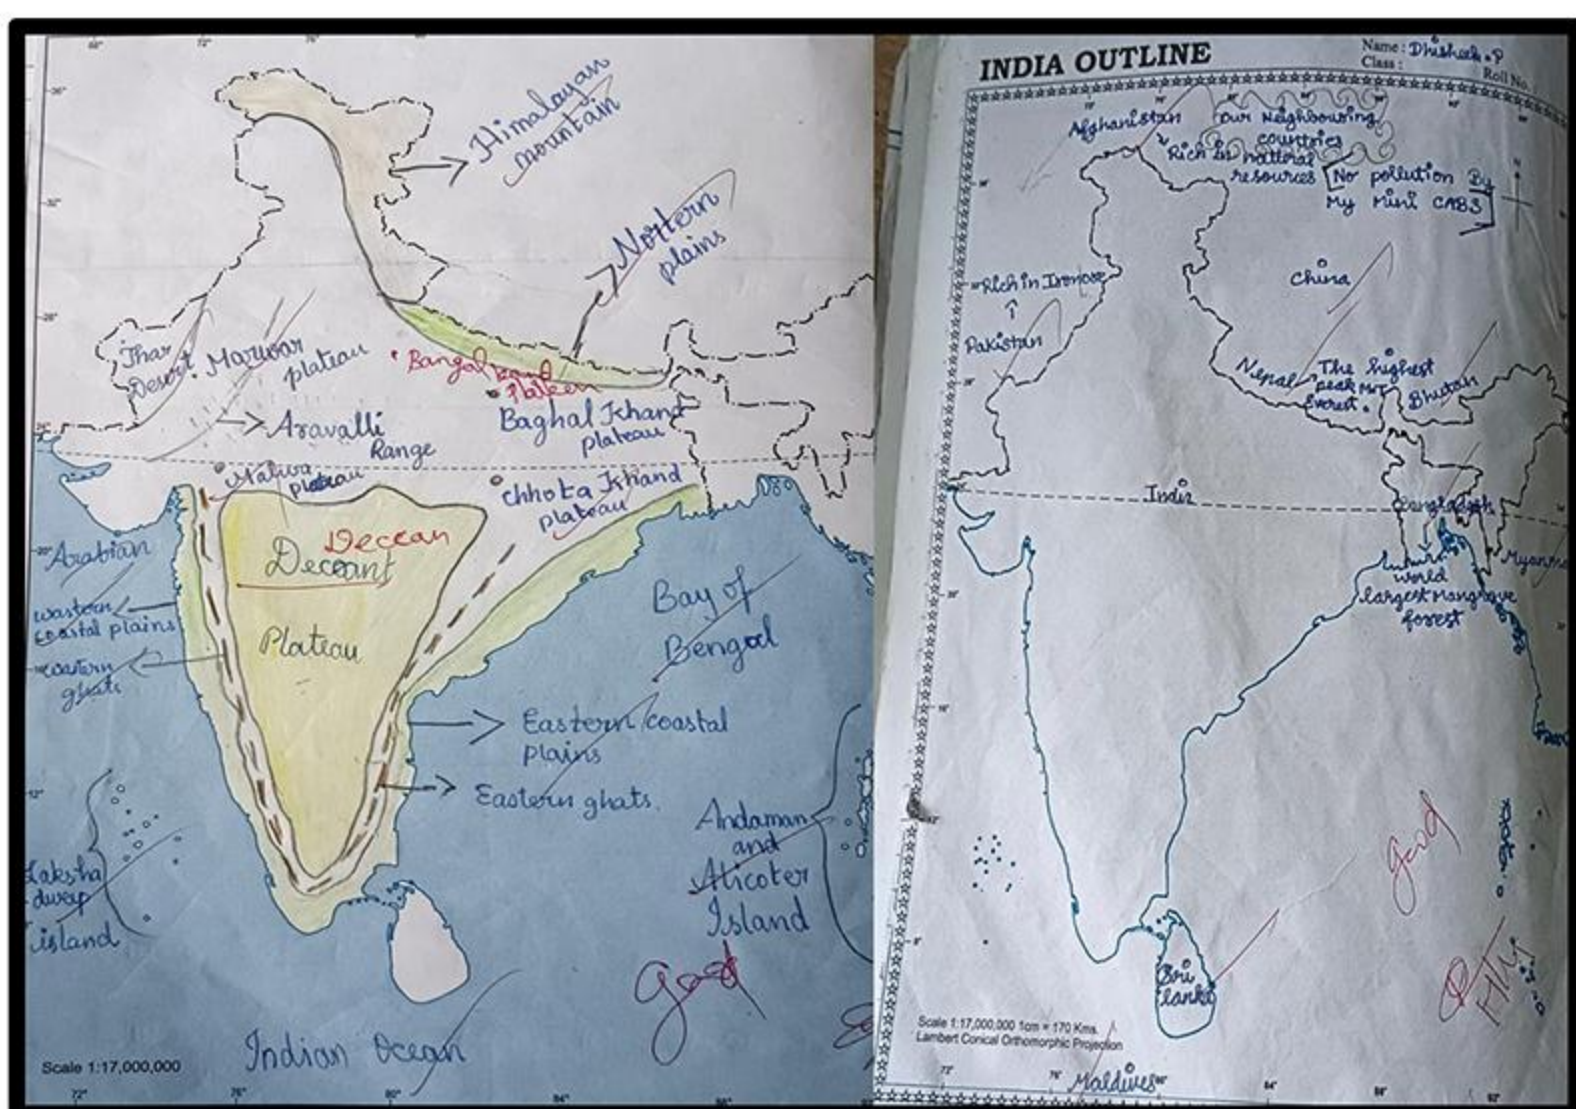 Himalayan
mountain
Nortern
plains
Thar
Desert
Marwar
plateau
Bangal
Baghal Khand
plateau
Aravalli
Range
Malwa
plateau
Chhota Khand
plateau
Arabian
Deccan
Plateau
wastern
coastal plains
ghats
Bay of
Bengal
Eastern coastal
plains
Eastern ghats.
Laksha
dweep
island
Andaman
and
Nicoter
Island
good
Indian Ocean
Scale 1:17,000,000
INDIA OUTLINE
Name :
Class :
Roll No.
Afghanistan
our Neighbouring
countries
Rich in natteral
resources
[No pollution By
My Mini CABS]
Rich in Ironore
Pakistan
China
Nepal
The highest
peak Mt
Everest.
Bhutan
India
Bangladesh
Myanma
world
largest Mangrove
forest
good
Sri
lanka
Scale 1:17,000,000 1cm = 170 Kms.
Lambert Conical Orthomorphic Projection
Maldives